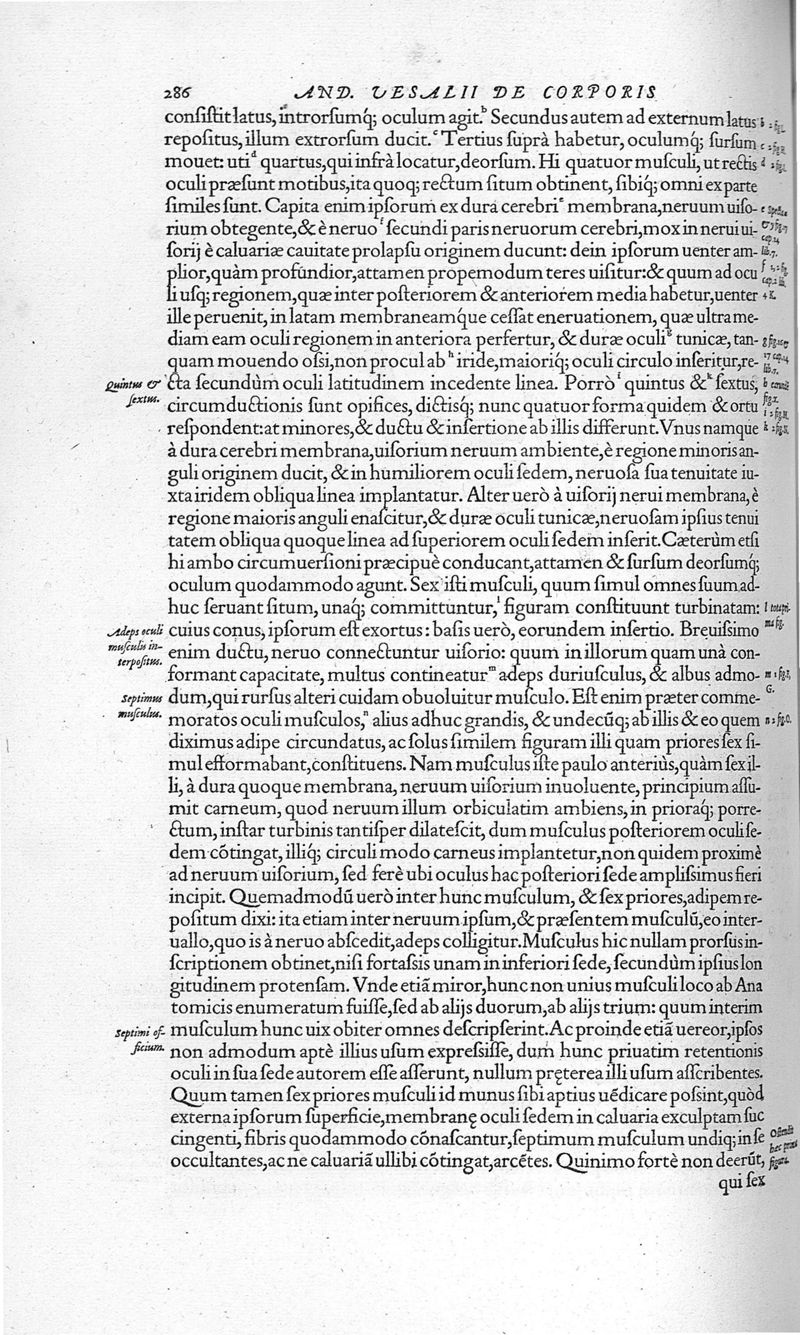 286 AND. VESALII DE CORPORIS
consistit latus, introrsumq́; oculum agit.ᵇ Secundus autem ad externum latus
repositus, illum extrorsum ducit.ᶜ Tertius suprà habetur, oculumq́; sursum
mouet: utiᵈ quartus, qui infrà locatur, deorsum. Hi quatuor musculi, ut rectis
oculi præsunt motibus, ita quoq; rectum situm obtinent, sibiq́; omni ex parte
similes sunt. Capita enim ipsorum ex dura cerebriᵉ membrana, neruum uiso-
rium obtegente, & è neruoᶠ secundi paris neruorum cerebri, mox in nerui ui-
sorij è caluariæ cauitate prolapsu originem ducunt: dein ipsorum uenter am-
plior, quàm profundior, attamen propemodum teres uisitur: & quum ad ocu
li usq; regionem, quæ inter posteriorem & anteriorem media habetur, uenter
ille peruenit, in latam membraneamq́ue cessat eneruationem, quæ ultra me-
diam eam oculi regionem in anteriora perfertur, & duræ oculiᵍ tunicæ, tan-
quam mouendo ossi, non procul abʰ iride, maioriq́; oculi circulo inseritur, re-
Quintus &
sextus.
cta secundùm oculi latitudinem incedente linea. Porròⁱ quintus &ᵏ sextus,
circumductionis sunt opifices, dictisq́; nunc quatuor forma quidem & ortu
respondent: at minores, & ductu & insertione ab illis differunt. Vnus namque
à dura cerebri membrana, uisorium neruum ambiente, è regione minoris an-
guli originem ducit, & in humiliorem oculi sedem, neruosa sua tenuitate iu-
xta iridem obliqua linea implantatur. Alter uerò à uisorij nerui membrana, è
regione maioris anguli enascitur, & duræ oculi tunicæ, neruosam ipsius tenui
tatem obliqua quoque linea ad superiorem oculi sedem inserit. Cæterùm etsi
hi ambo circumuersioni præcipuè conducant, attamen & sursum deorsumq́;
oculum quodammodo agunt. Sex isti musculi, quum simul omnes suum ad-
huc seruant situm, unaq́; committuntur,ˡ figuram constituunt turbinatam:
Adeps oculi
musculis in-
terpositus.
cuius conus, ipsorum est exortus: basis uerò, eorundem insertio. Breuissimo
enim ductu, neruo connectuntur uisorio: quum in illorum quam unà con-
formant capacitate, multus contineaturᵐ adeps duriusculus, & albus admo-
Septimus
musculus.
dum, qui rursus alteri cuidam obuoluitur musculo. Est enim præter comme-
moratos oculi musculos,ⁿ alius adhuc grandis, & undecūq; ab illis & eo quem
diximus adipe circundatus, ac solus similem figuram illi quam priores sex si-
mul efformabant, constituens. Nam musculus iste paulo anteriùs, quàm sex il-
li, à dura quoque membrana, neruum uisorium inuoluente, principium assu-
mit carneum, quod neruum illum orbiculatim ambiens, in prioraq́; porre-
ctum, instar turbinis tantisper dilatescit, dum musculus posteriorem oculi se-
dem cōtingat, illiq́; circuli modo carneus implantetur, non quidem proximè
ad neruum uisorium, sed ferè ubi oculus hac posteriori sede amplissimus fieri
incipit. Quemadmodū uerò inter hunc musculum, & sex priores, adipem re-
positum dixi: ita etiam inter neruum ipsum, & præsentem musculū, eo inter-
uallo, quo is à neruo abscedit, adeps colligitur. Musculus hic nullam prorsus in-
scriptionem obtinet, nisi fortassis unam in inferiori sede, secundùm ipsius lon
gitudinem protensam. Vnde etiā miror, hunc non unius musculi loco ab Ana
tomicis enumeratum fuisse, sed ab alijs duorum, ab alijs trium: quum interim
Septimi of-
ficium.
musculum hunc uix obiter omnes descripserint. Ac proinde etiā uereor, ipsos
non admodum aptè illius usum expressisse, dum hunc priuatim retentionis
oculi in sua sede autorem esse asserunt, nullum pręterea illi usum asscribentes.
Quum tamen sex priores musculi id munus sibi aptius uēdicare possint, quòd
externa ipsorum superficie, membranę oculi sedem in caluaria exculptam suc
cingenti, fibris quodammodo cōnascantur, septimum musculum undiq; in se
occultantes, ac ne caluariā ullibi cōtingat, arcētes. Quinimo fortè non deerūt,
qui sex